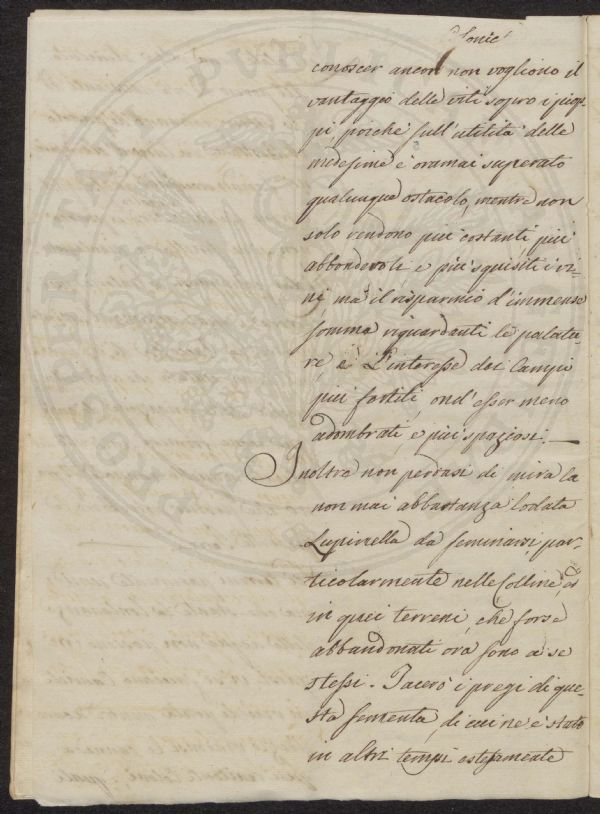 conoscer ancor non vogliono il
vantaggio delle viti sopra i piop-
pi, poiché sull'utilità delle
medesime è oramai superato
qualunque ostacolo, mentre non
solo rendono più costanti, più
abbondevoli, e più squisiti i vi-
ni, ma il risparmio d'immense
somme riguardanti le palatu-
re, è L'interesse dei Campi
più fertili, ond'esser meno
adombrati, e più spaziosi. —
Inoltre non perdasi di mira la
non mai abbastanza lodata
Lupinella da seminarsi par-
ticolarmente nelle Colline, ed
in quei terreni, che forse
abbandonati ora sono a se
stessi. Tacerò i pregi di que-
sta sementa, di cui ne è stato
in altri tempi estesamente